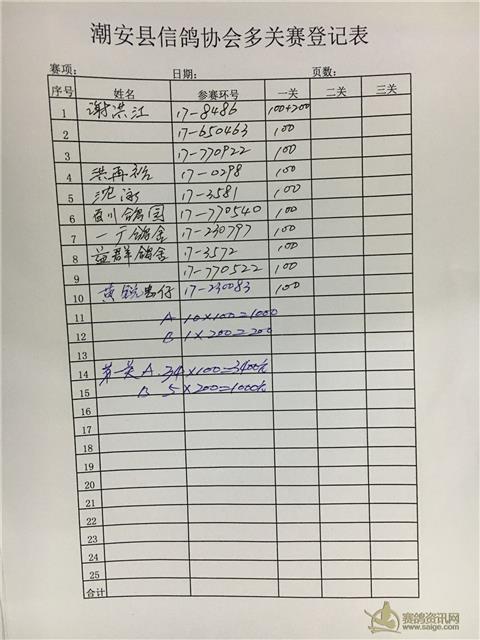 潮安县信鸽协会多关赛登记表
赛项: 日期: 页数:
序号 姓名 参赛环号 一关 二关 三关
1 谢洪江 17-8486 100+200
2 17-650463 100
3 17-770922 100
4 洪再裕 17-0298 100
5 沈泳 17-3581 100
6 百川鸽园 17-770540 100
7 一广鸽舍 17-230797 100
8 益群鸽舍 17-3572 100
9 17-770522 100
10 17-230083 100
11 A 10×100=1000
12 B 1×200=200
13
14 第一关 A. 34×100=3400元
15 B 5×200=1000元
16
17
18
19
20
21
22
23
24
25
合计
赛鸽资讯网
www.saige.com